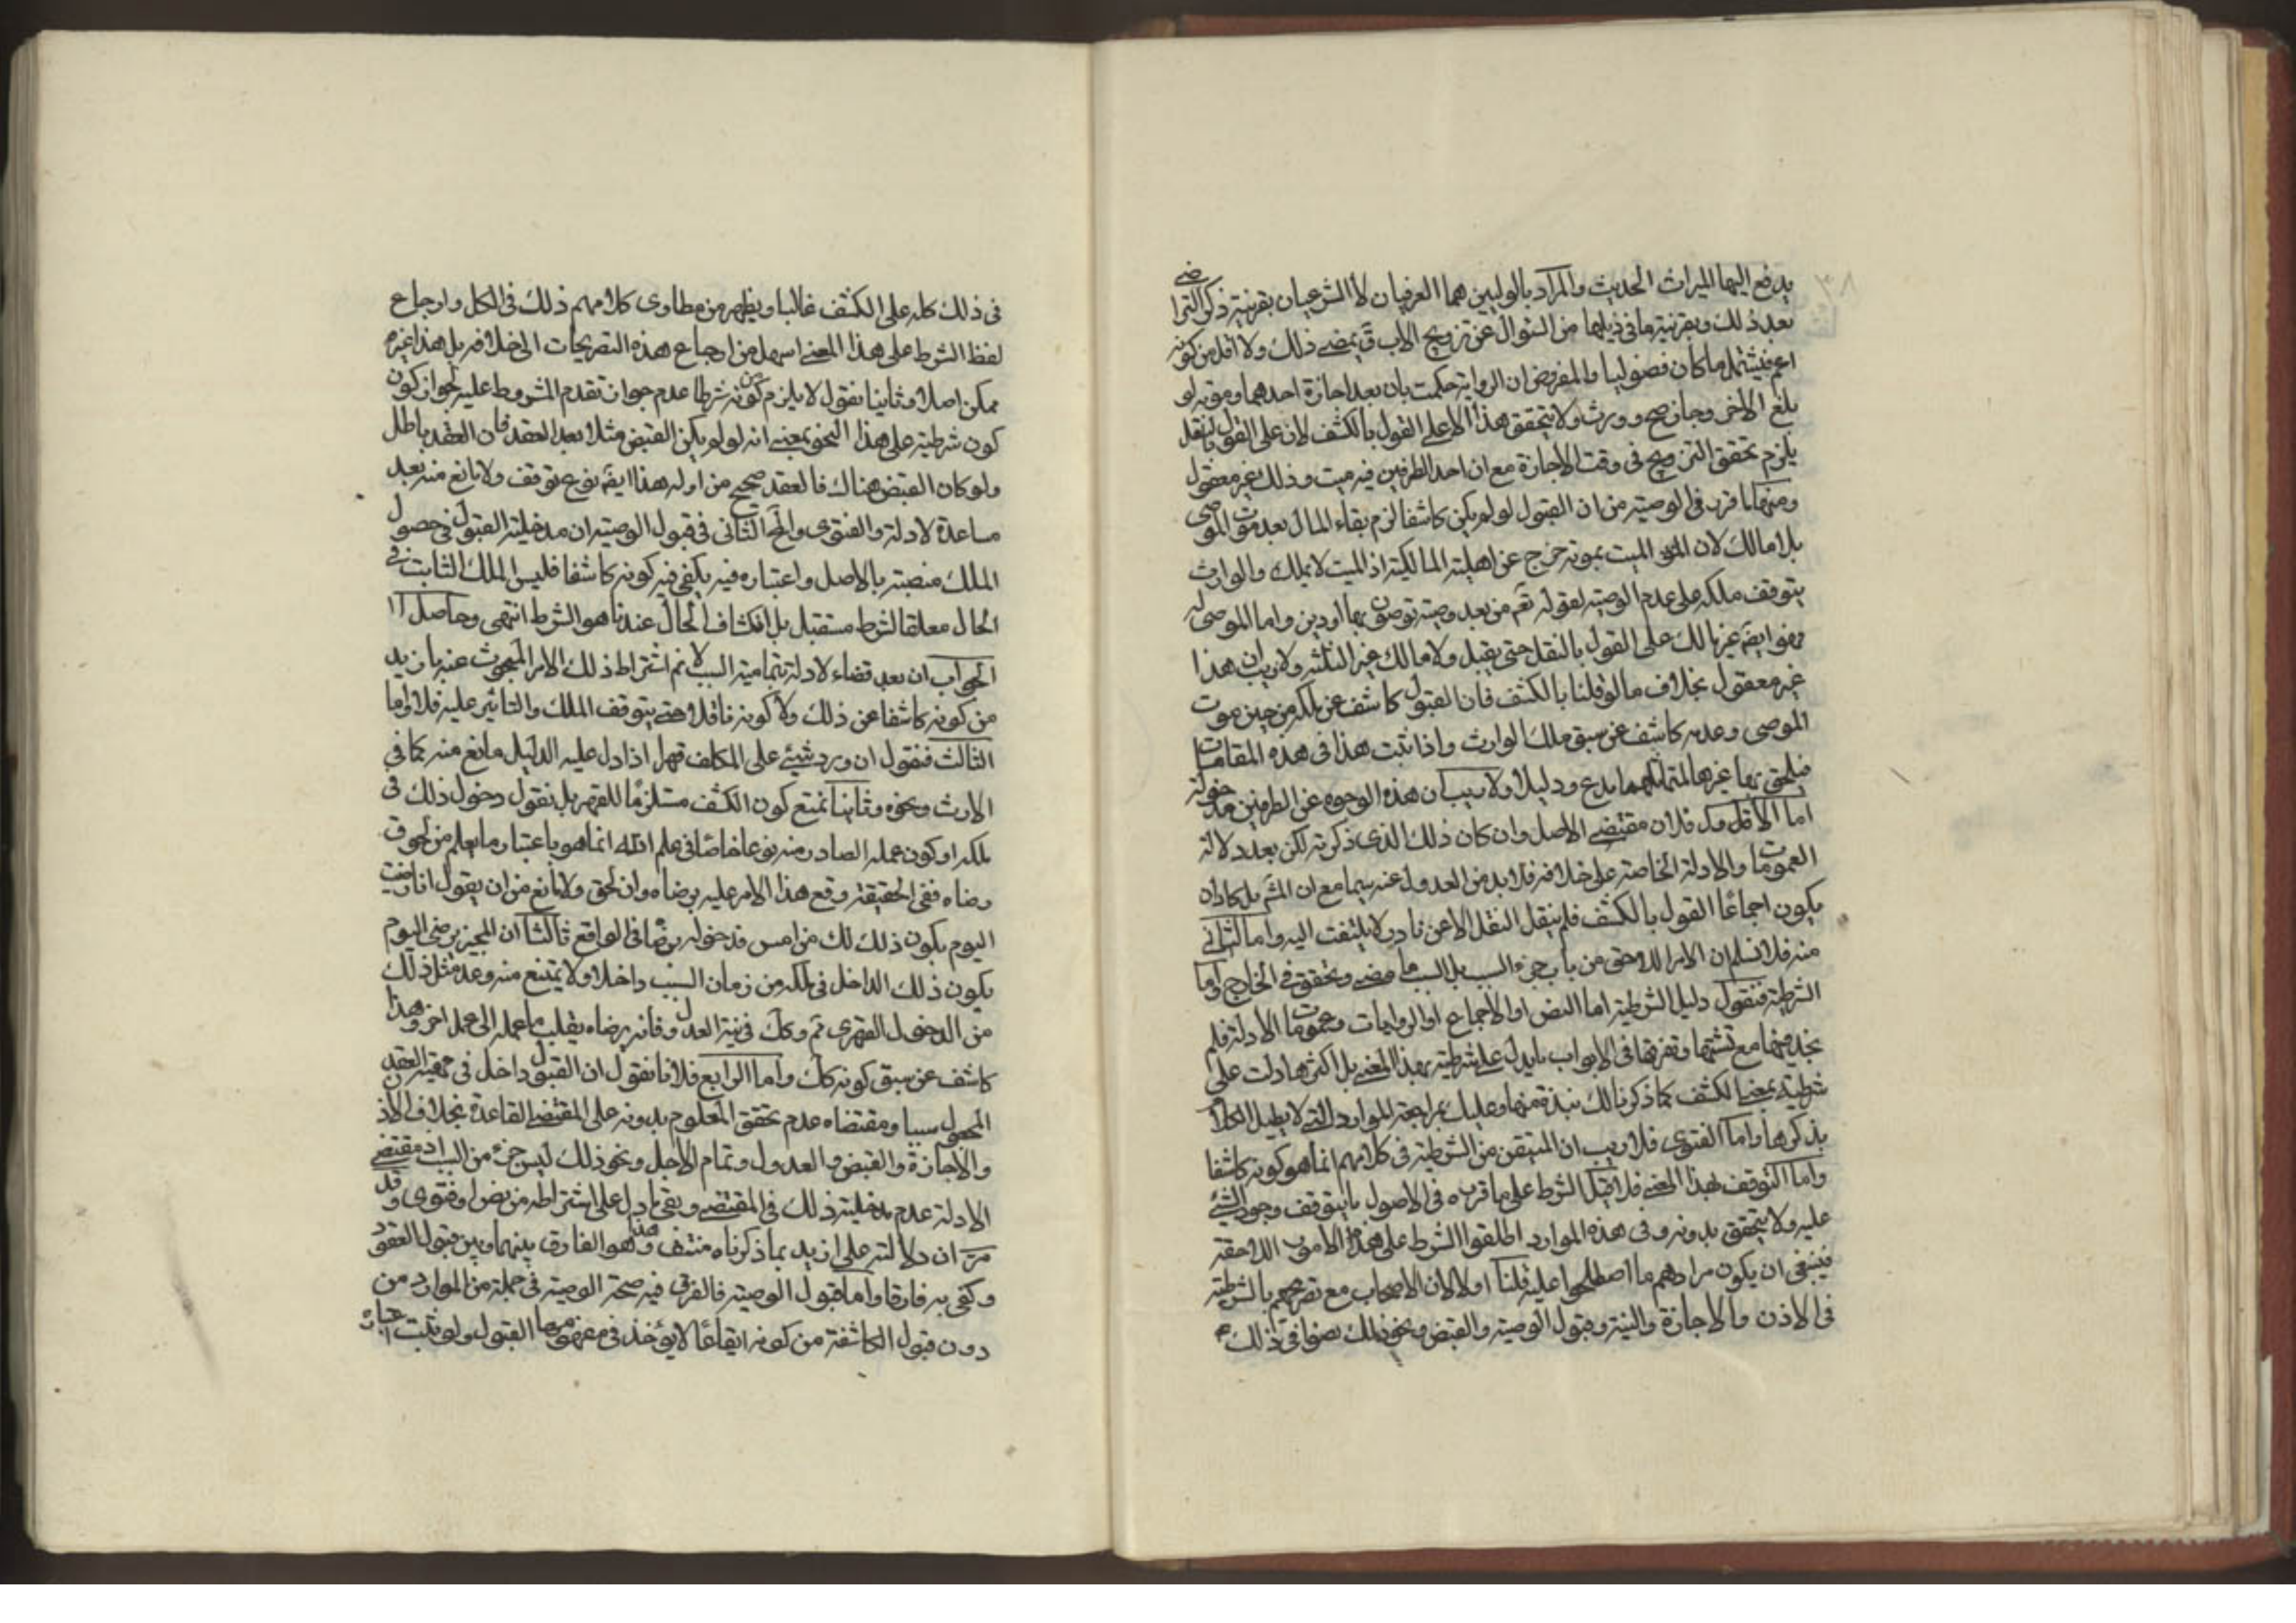 يدفع اليها الميراث الحديث والمراد بالوليين هما العرفيان لا الشرعيان بقرينة ذكر التراضي
بعد ذلك وبقرينة ما في ذيلها من السؤال عن تزويج الاب قم يمضى ذلك ولا اقل من كونه
اعم فيشتمل ما كان فضوليا والمفروض ان الرواية حكمت بان بعد اجازة احدهما وموته لو
بلغ الاخر وجاز صح وورث ولا يتحقق هذا الا على القول بالكشف لان على القول بالنقل
يلزم تحقق التزويج في وقت الاجازة مع ان احد الطرفين فيه ميت وذلك غير معقول
ومنها ما قرب في الوصية من ان القبول لو لم يكن كاشفا لزم بقاء المال بعد موت الموصى
بلا مالك لان الميت بموته خرج عن اهلية المالكية اذ الميت لا يملك والوارث
يتوقف ملكه على عدم الوصية لقوله تعم من بعد وصية توصون بها او دين واما الموصى له
فهو ايضه غير مالك على القول بالنقل حتى يقبل ولا مالك غير الثلثة ولا ريب ان هذا
غير معقول بخلاف ما لو قلنا بالكشف فان القبول كاشف عن ملكه من حين موت
الموصى وعدمه كاشف عن سبق ملك الوارث واذا ثبت هذا في هذه المقامات
فيلحق بها غيرها ودليلا ولا ان هذه الوجوه عن الطرفين مدخولة
اما الاول فلان مقتضى الاصل وان كان ذلك الذي ذكرته لكن بعد دلالة
العمومات والادلة الخاصة على خلافه فلا بد من العدول عنه سيما مع ان كاد ان
يكون اجماعا القول بالكشف فلم ينقل النقل الا عن نادر لا يلتفت اليه واما الثاني
منه فلا نسلم ان الامر اللاحق من باب جزء السبب بل السبب ما مضى وتحقق في الخارج واما
الشرطية فنقول دليل الشرطية اما النص او الاجماع او الروايات وعمومات الادلة فلم
نجد فيها مع تشتتها وتفرقها في الابواب ما يدل على شرطيته بهذا المعنى بل اكثرها دلت على
شرطيته بمعنى الكشف كما ذكرنا لك نبذة منها وعليك بمراجعة الموارد التي لا يطيل الكلام
بذكرها واما الفتوى فلا ريب ان المتيقن من الشرطية في كلامهم انما هو كونه كاشفا
واما التوقف بهذا المعنى فلا الشرط على ما قرره في الاصول ما يتوقف وجود الشئ
عليه ولا يتحقق بدونه وفي هذه الموارد اطلقوا الشرط على هذه الامور اللاحقة
فينبغى ان يكون مرادهم ما اصطلحوا عليه قلنا اولا لان الاصحاب مع تصريحهم بالشرطية
في الاذن والاجازة والنية وقبول الوصية والقبض ونحو ذلك نصوا في ذلك
في ذلك كله على الكشف غالبا ويظهر من مطاوى كلامهم ذلك في الكل وارجاع
لفظ الشرط على هذا المعنى اسهل من ارجاع هذه التصريحات الى خلافه بل هذا غير
ممكن اصلا وثانيا نقول لا يلزم من كونه شرطا عدم جواز تقدم المشروط عليه لجواز كون
كون شرطيته على هذا النحو بمعنى انه لو لم يكن القبض مثلا بعد العقد فان العقد باطل
ولو كان القبض هناك فالعقد صحيح من اوله هذا ايضه نوع توقف ولا مانع منه بعد
مساعدة الادلة والفتوى الثاني في قبول الوصية ان مدخلية القبول في حصول
الملك منصبة بالاصل واعتباره فيه يكفى فيه كونه كاشفا فليس الملك الثابت في
الحال معلقا لشرط مستقبل بل انكشاف الحال عندنا هو الشرط انتهى وحاصل
الجواب ان بعد قضاء الادلة بتمامية السبب لا نم اشتراط ذلك الامر المبحوث عنه بازيد
من كونه كاشفا عن ذلك ولا كونه ناقلا حتى يتوقف الملك والتاثير عليه فلا واما
الثالث فنقول ان ورد شيئ على المكلف قهرا اذا دل عليه الدليل ما نع منه كما في
الارث ونحوه وثانيا نمنع كون الكشف مستلزما للقهر بل نقول دخول ذلك في
ملكه او كون عمله الصادر منه نوعا خاصا في علم الله انما هو باعتبار ما يعلم من لحوق
رضاه ففي الحقيقة وقع هذا الامر عليه برضاه وان لحق ولا مانع من ان يقول انا رضيت
اليوم بكون ذلك لك من امس فدخوله برضا في الواقع ثالثا ان المجيز يرضى اليوم
بكون ذلك الداخل في ملكه من زمان السبب داخلا ولا يمتنع منه وعد مثل ذلك
من الدخول القهرى ثم وكك في نية العدول فانه برضاه يقلب ما عمله الى عمل اخر وهذا
كاشف عن سبق كونه كك واما الرابع فلانا نقول ان القبول داخل في حقيقة العقد
المجعول سببا ومقتضاه عدم تحقق المعلوم بدونه على المقتضى القاعدة بخلاف الاذن
والاجازة والقبض والعدول وتمام الاجل ونحو ذلك ليس جزء من السبب اذ مقتضى
الادلة عدم مدخلية ذلك في المقتضى وبقى ما دل على اشتراطه من نص او فتوى وقد
مر ان دلالته على ازيد بما ذكرناه منتف وهذا هو الفارق بينهما وبين قبول العقود
وكفى به فارقا واما قبول الوصية فالفرق فيه صحة الوصية في جملة من الموارد من
دون قبول الكاشفة من كونه ايقاعا لا يؤخذ في مفهومها القبول ولو ثبت